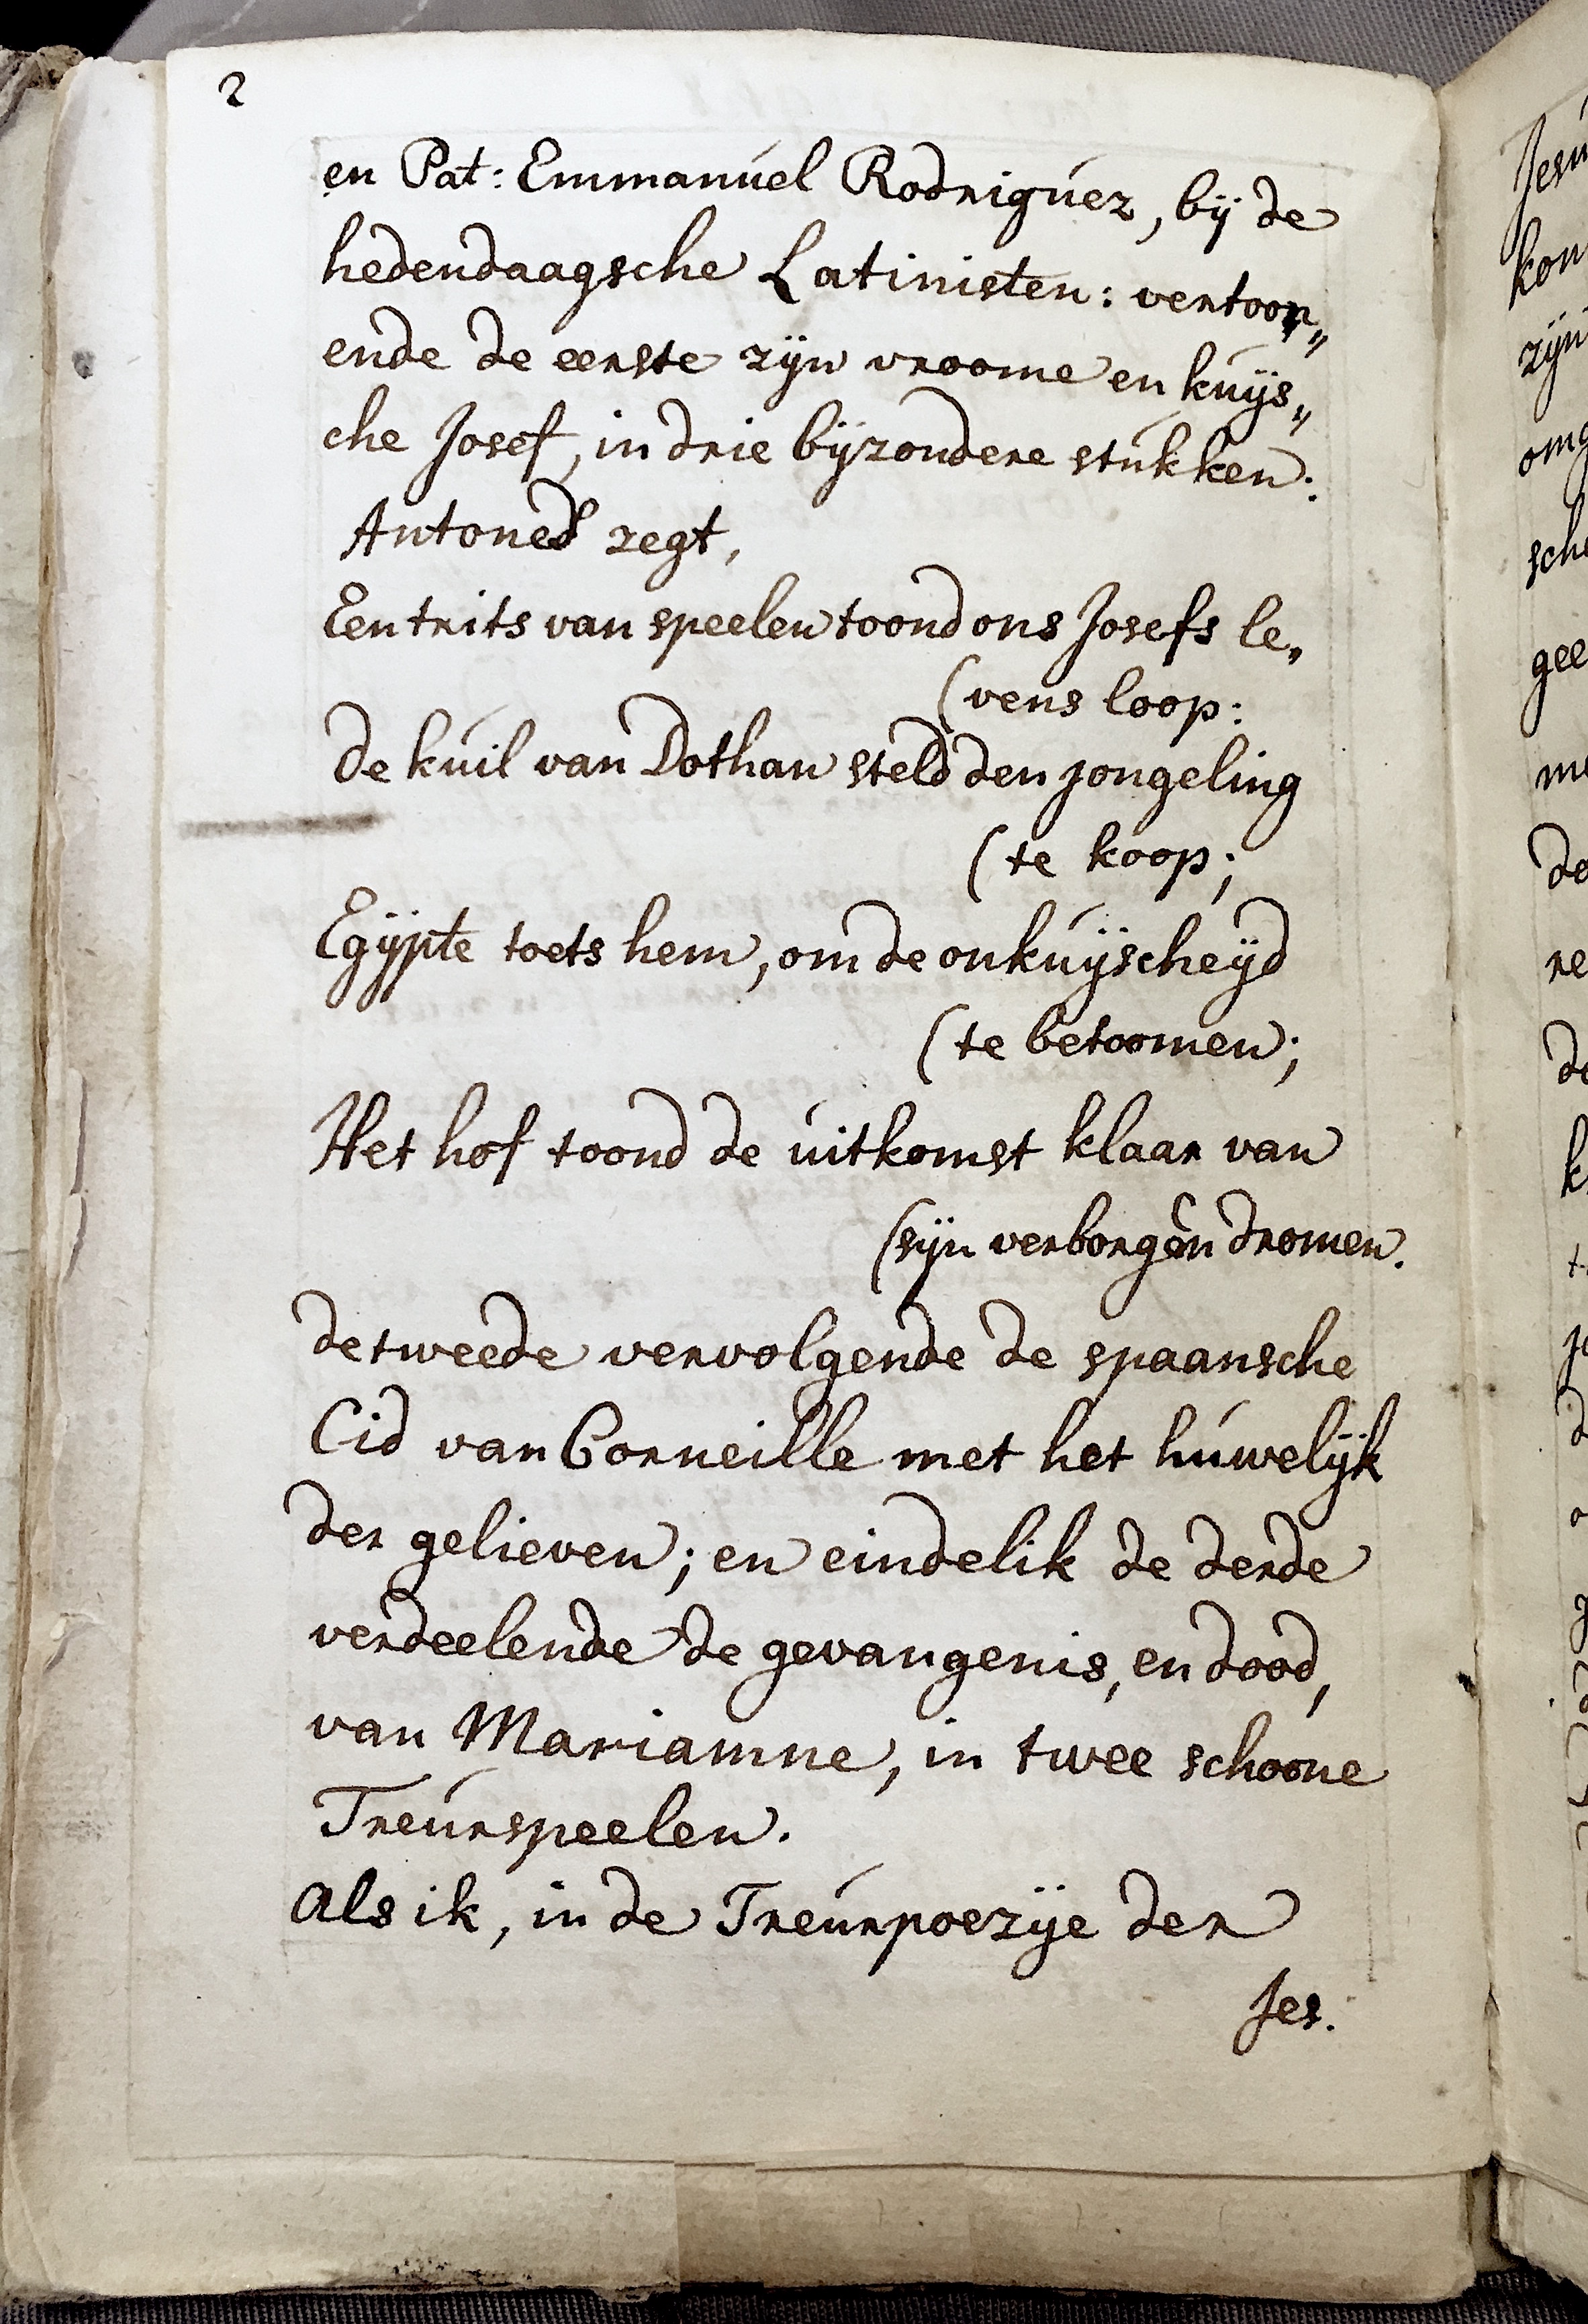 2
en Pat: Emmanúel Rodrigúez, bij de
hedendaagsche Latinisten: vertoon„
ende de eerste zijn vroome en kúijs„
che Josef, in drie bijzondere stúkken:
Antonés zegt,
Een trits van speelen toond ons Josefs le„
(vens loop:
de kúil van Dothan steld den jongeling
(te koop;
Egÿpte toets hem, om de onkúijscheijd
(te betoomen;
Het hof toond de úitkomst klaar van
(sijn verborgen dromen.
de tweede vervolgende de spaansche
Cid van Corneille met het húwelijk
der gelieven; en eindelik de derde
verdeelende de gevangenis, en dood,
van Mariamne, in twee schoone
Treúrspeelen.
Als ik, in de Treúrpoezije der
Jes.
kon
zijn
omg
sch
gee
me
de
re
de